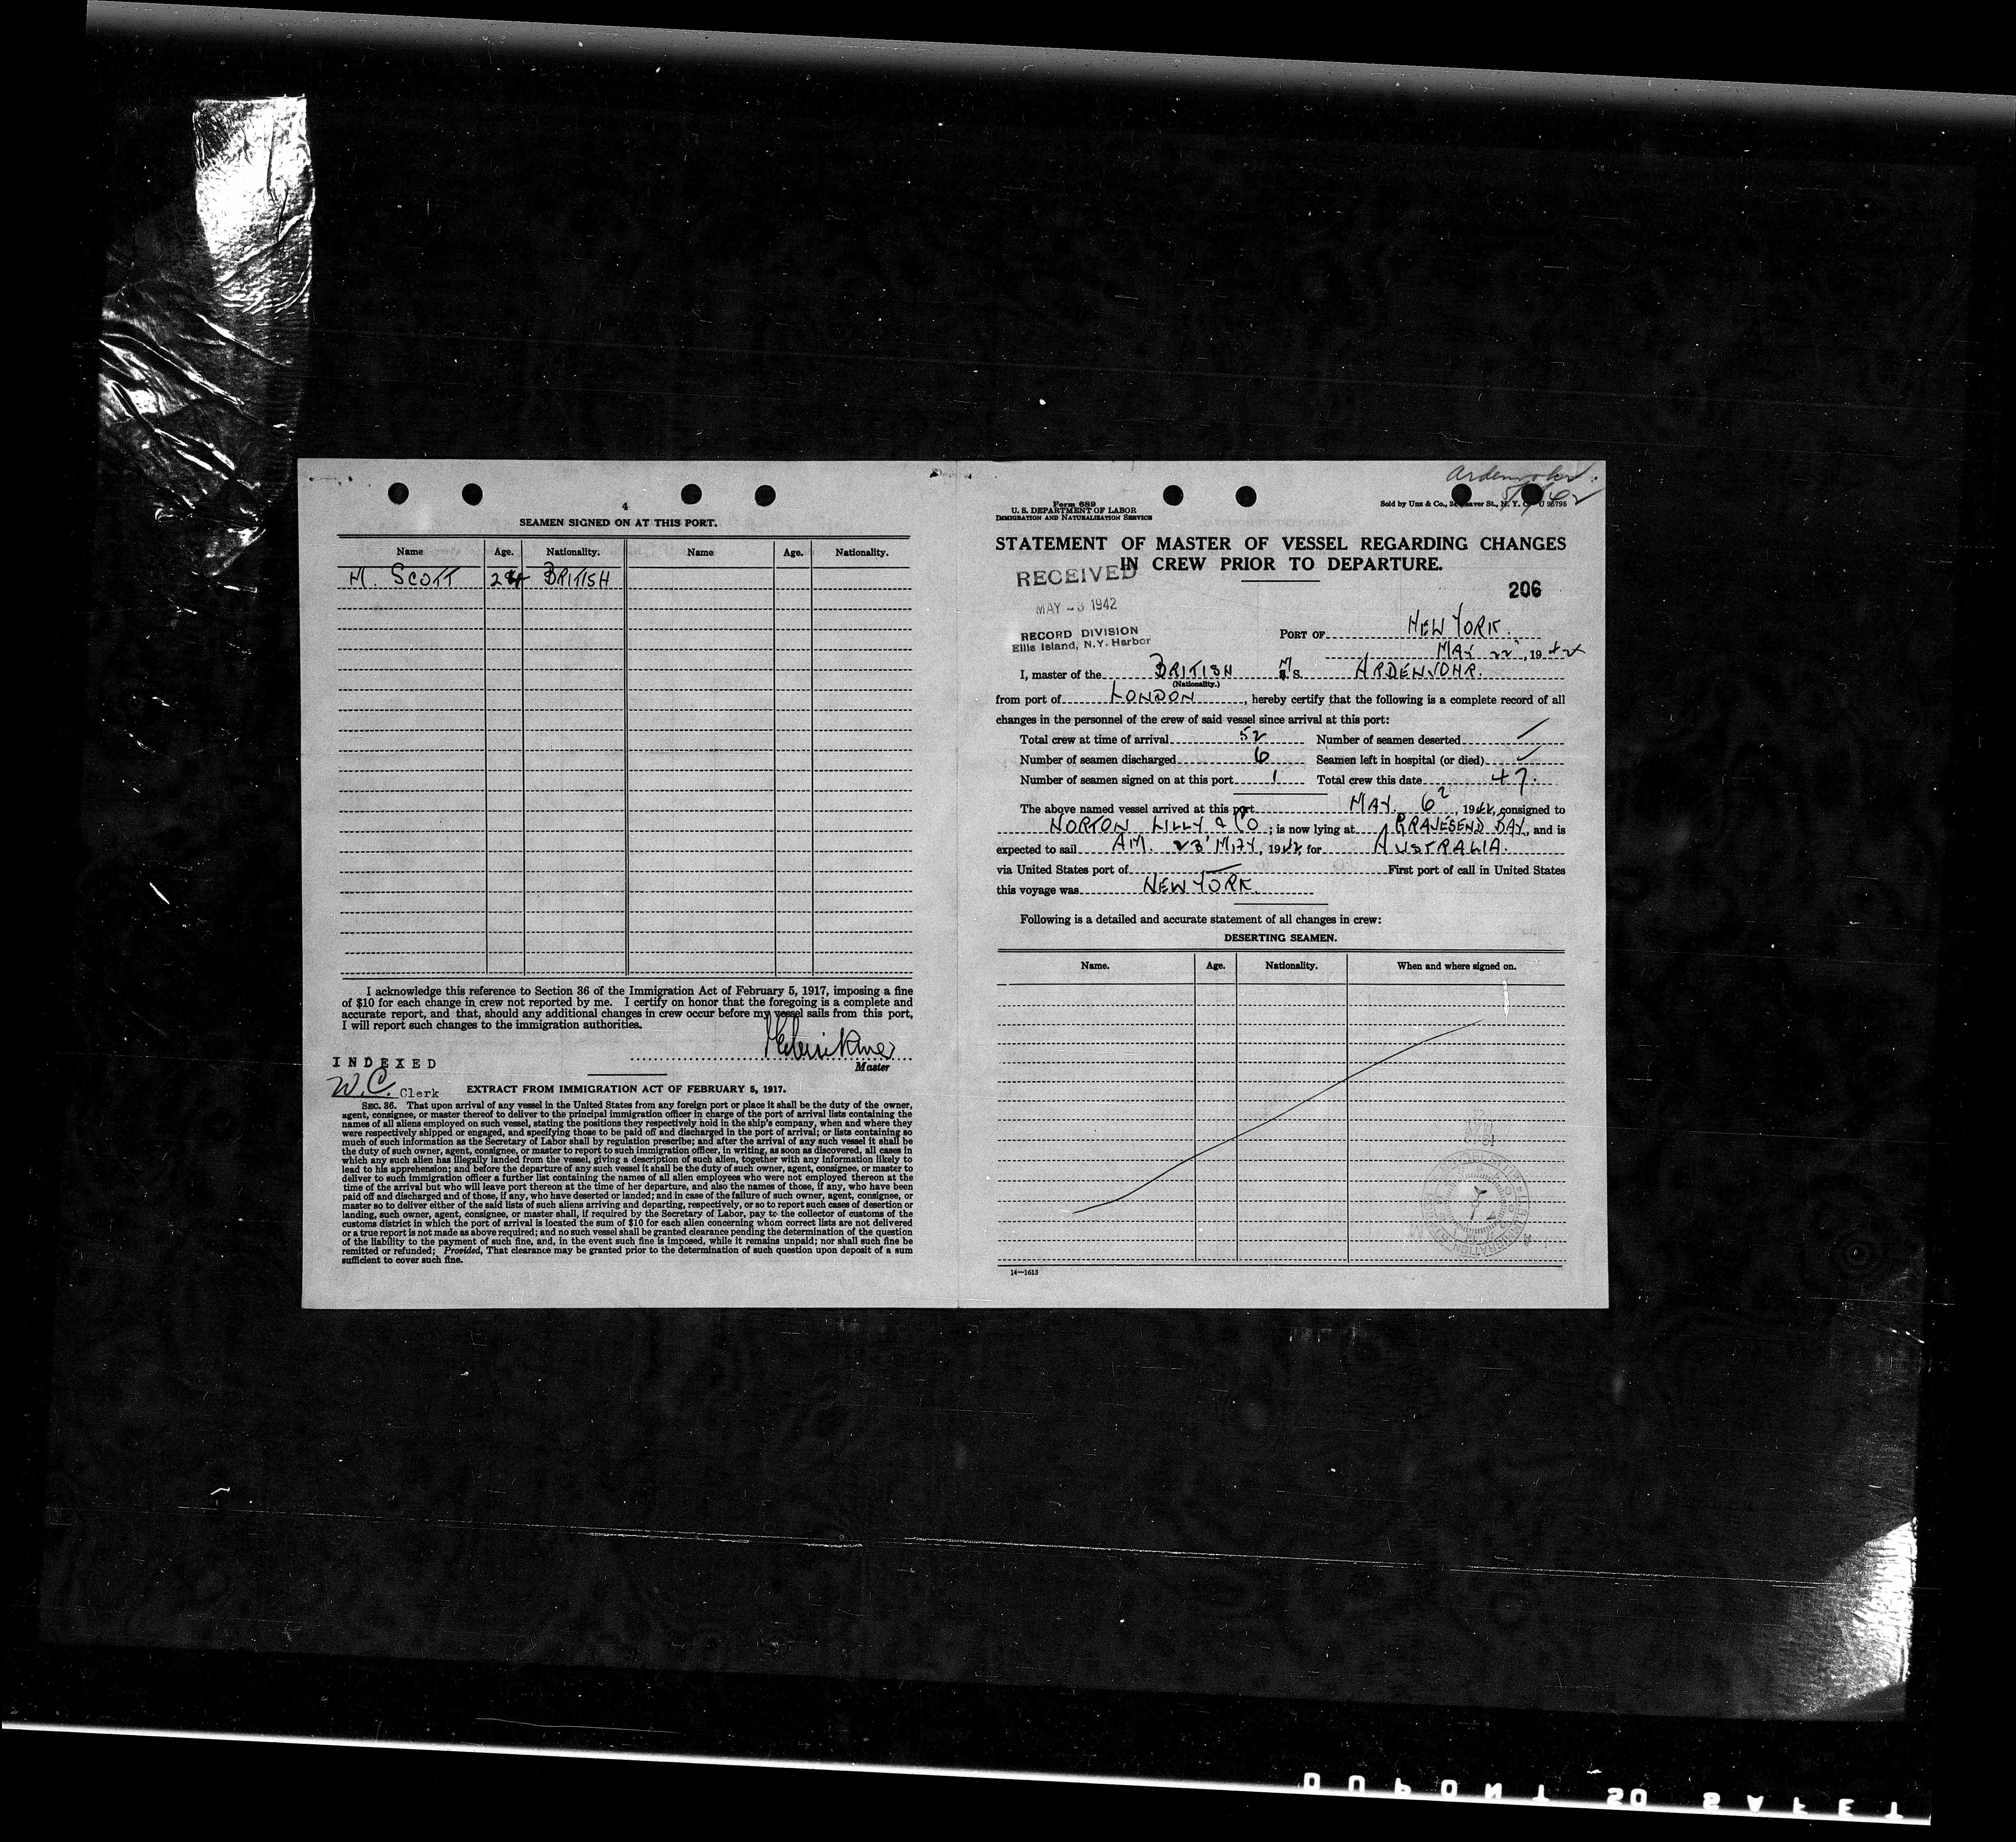 4
SEAMEN SIGNED ON AT THIS PORT.
Name Age. Nationality. Name Age. Nationality.
M. SCOTT 24 BRITISH
I acknowledge this reference to Section 36 of the Immigration Act of February 5, 1917, imposing a fine
of $10 for each change in crew not reported by me. I certify on honor that the foregoing is a complete and
accurate report, and that, should any additional changes in crew occur before my vessel sails from this port,
I will report such changes to the immigration authorities.
Master
INDEXED
W.C. Clerk
EXTRACT FROM IMMIGRATION ACT OF FEBRUARY 5, 1917.
SEC. 36. That upon arrival of any vessel in the United States from any foreign port or place it shall be the duty of the owner,
agent, consignee, or master thereof to deliver to the principal immigration officer in charge of the port of arrival lists containing the
names of all aliens employed on such vessel, stating the positions they respectively hold in the ship's company, when and where they
were respectively shipped or engaged, and specifying those to be paid off and discharged in the port of arrival; or lists containing so
much of such information as the Secretary of Labor shall by regulation prescribe; and after the arrival of any such vessel it shall be
the duty of such owner, agent, consignee, or master to report to such immigration officer, in writing, as soon as discovered, all cases in
which any such alien has illegally landed from the vessel, giving a description of such alien, together with any information likely to
lead to his apprehension; and before the departure of any such vessel it shall be the duty of such owner, agent, consignee, or master to
deliver to such immigration officer a further list containing the names of all alien employees who were not employed thereon at the
time of the arrival but who will leave port thereon at the time of her departure, and also the names of those, if any, who have been
paid off and discharged and of those, if any, who have deserted or landed; and in case of the failure of such owner, agent, consignee, or
master so to deliver either of the said lists of such aliens arriving and departing, respectively, or so to report such cases of desertion or
landing, such owner, agent, consignee, or master shall, if required by the Secretary of Labor, pay to the collector of customs of the
customs district in which the port of arrival is located the sum of $10 for each alien concerning whom correct lists are not delivered
or a true report is not made as above required; and no such vessel shall be granted clearance pending the determination of the question
of the liability to the payment of such fine, and, in the event such fine is imposed, while it remains unpaid; nor shall such fine be
remitted or refunded; Provided, That clearance may be granted prior to the determination of such question upon deposit of a sum
sufficient to cover such fine.
Form 689
U. S. DEPARTMENT OF LABOR
IMMIGRATION AND NATURALIZATION SERVICE
Sold by Unz & Co., Beaver St., N. Y. C. U 95795
STATEMENT OF MASTER OF VESSEL REGARDING CHANGES
IN CREW PRIOR TO DEPARTURE.
RECEIVED
206
MAY 23 1942
RECORD DIVISION
Ellis Island, N.Y. Harbor
PORT OF NEW YORK.
MAY 22, 1942
I, master of the BRITISH M S. ARDENVOHR.
(Nationality.)
from port of LONDON, hereby certify that the following is a complete record of all
changes in the personnel of the crew of said vessel since arrival at this port:
Total crew at time of arrival 52 Number of seamen deserted
Number of seamen discharged 6 Seamen left in hospital (or died)
Number of seamen signed on at this port 1 Total crew this date 47.
The above named vessel arrived at this port MAY. 6, 1942, consigned to
NORTON LILLY & CO; is now lying at GRAVESEND BAY, and is
expected to sail AM. 23 MAY, 1942, for AUSTRALIA.
via United States port of First port of call in United States
this voyage was NEW YORK.
Following is a detailed and accurate statement of all changes in crew:
DESERTING SEAMEN.
Name. Age. Nationality. When and where signed on.
14—1613
DUPONT SO SAFET